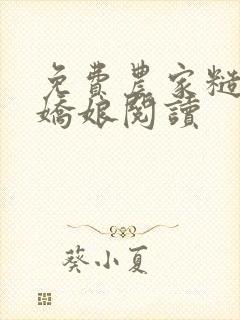 免費農家糙
嬌娘閱讀
葵小夏